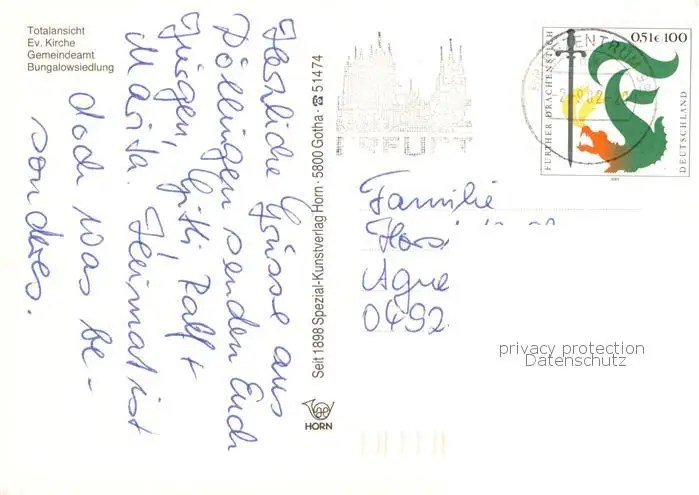 Totalansicht
Ev. Kirche
Gemeindeamt
Bungalowsiedlung
Herzliche Grüsse aus
Döllingen senden Euch
Jürgen, Gitti Ralf +
Marita. Heimat ist
doch was be-
sonderes.
Seit 1898 Spezial-Kunstverlag Horn · 5800 Gotha · ☎ 51474
HORN
ERFURT
FURTHER DRACHENSTICH
0,51€ 100
DEUTSCHLAND
2001
Familie
Hors
Agne
0492
privacy protection
Datenschutz